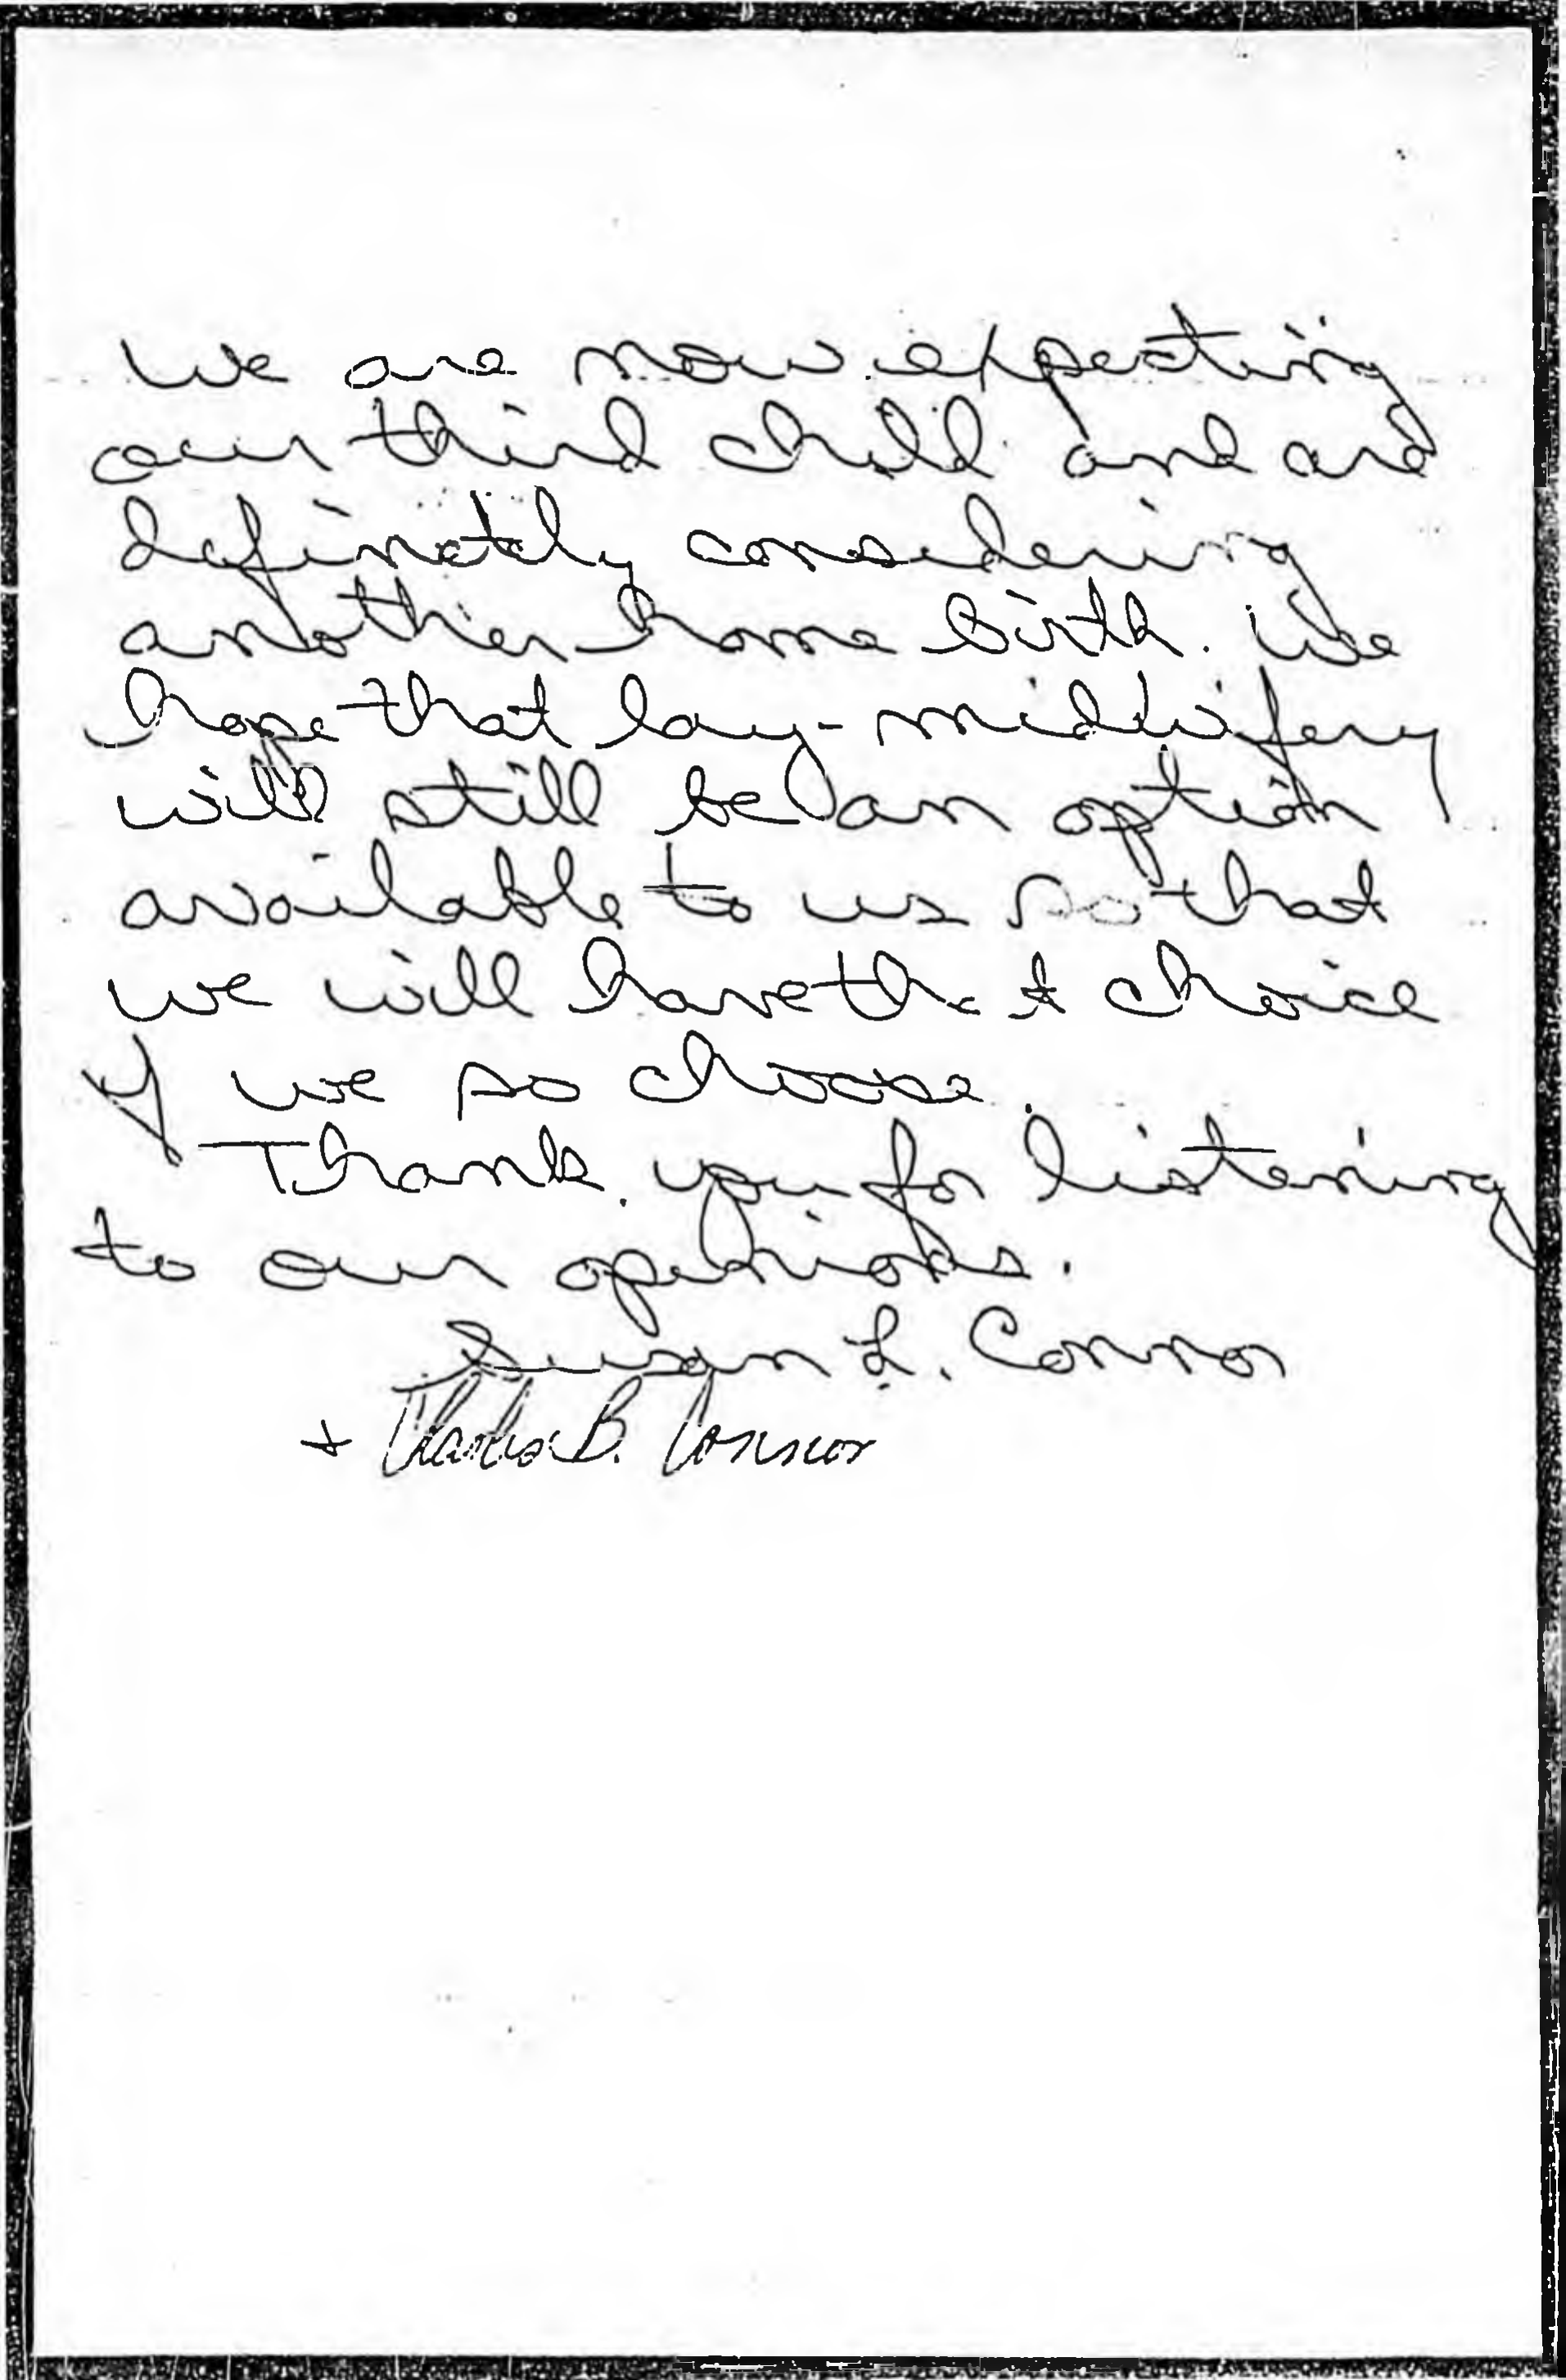 We are now expecting
our third child and are
definately considering
another home birth. We
hope that lay-midwifery
will still be an option
available to us so that
we will have that choice
if we so choose.
Thank you for listening
to our opinions.
Susan L. Connor
+ Charles B. Connor